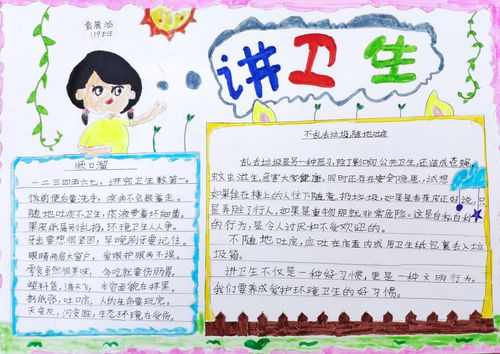 讲卫生
顺口溜
一二三四五六七，讲究卫生数第一。
饭前便后勤洗手，疾病不会跟着走。
随地吐痰不卫生，痰液带着坏细菌。
果皮纸屑别乱扔，环境卫生人人
牙齿要想很坚固，早晚刷牙要记住。
眼睛两扇大窗户，爱眼护眼两不误。
零食虽然很美味，贪吃就要伤肠胃。
塑料袋，满天飞，市容面貌在
扔纸张，吐口痰，人的生命
天变灰，河变脏，生态环境在受伤。
不乱丢垃圾，随地吐痰
乱丢垃圾是另一种恶习，除了影响公共卫生，还造成苍蝇，
蚊虫滋生，危害大家健康。同时还存在安全隐患，试想
如果住在楼上的人往下随意扔垃圾，如果是香蕉皮还好说，只
是弄脏了行人，如果是重物那就非常危险。这是自私自利
的行为，是令人讨厌和不受欢迎的。
不随地吐痰，应吐在痰盂内或用卫生纸包裹丢入垃
圾箱。
讲卫生不仅是一种好习惯，更是一种文明行为。
我们要养成爱护环境卫生的好习惯。